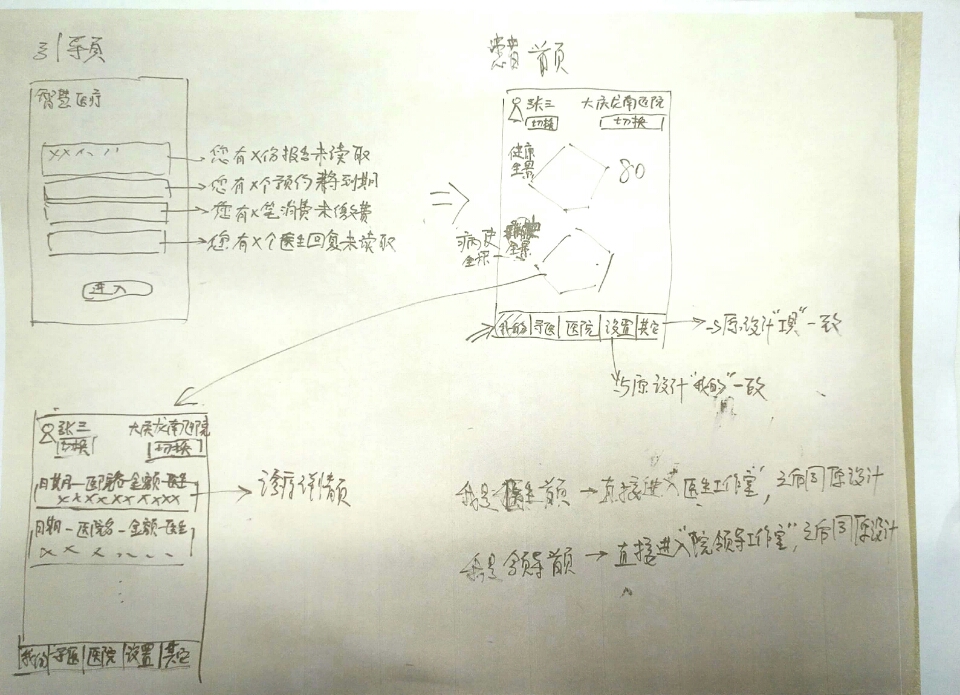 引导页
智慧医疗
xx
您有x份报告未读取
您有x个预约将到期
您有x笔消费未缴费
您有x个医生回复未读取
进入
患者首页
张三 大庆龙南医院
切换 切换
健康
全景
80
病史
全景
我的 寻医 医院 设置 其它
与原设计"工具"一致
与原设计"我的"一致
张三 大庆龙南医院
切换 切换
日期-医院名-金额-医生
xxxxxxxxx
诊疗详情页
日期-医院名-金额-医生
x x x
我的 寻医 医院 设置 其它
我是 首页 → 直接进入"医生工作室",之后同原设计
我是领导首页 → 直接进入"院领导工作室",之后同原设计